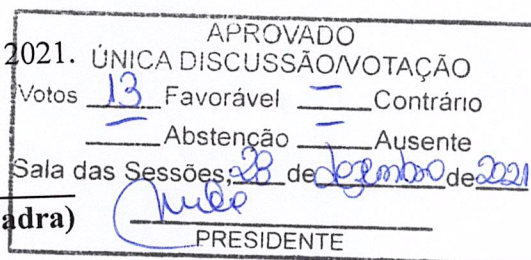 APROVADO
2021. ÚNICA DISCUSSÃO/VOTAÇÃO
Votos 13 Favorável — Contrário
— Abstenção — Ausente
Sala das Sessões, 28 de dezembro de 2021
adra)
PRESIDENTE